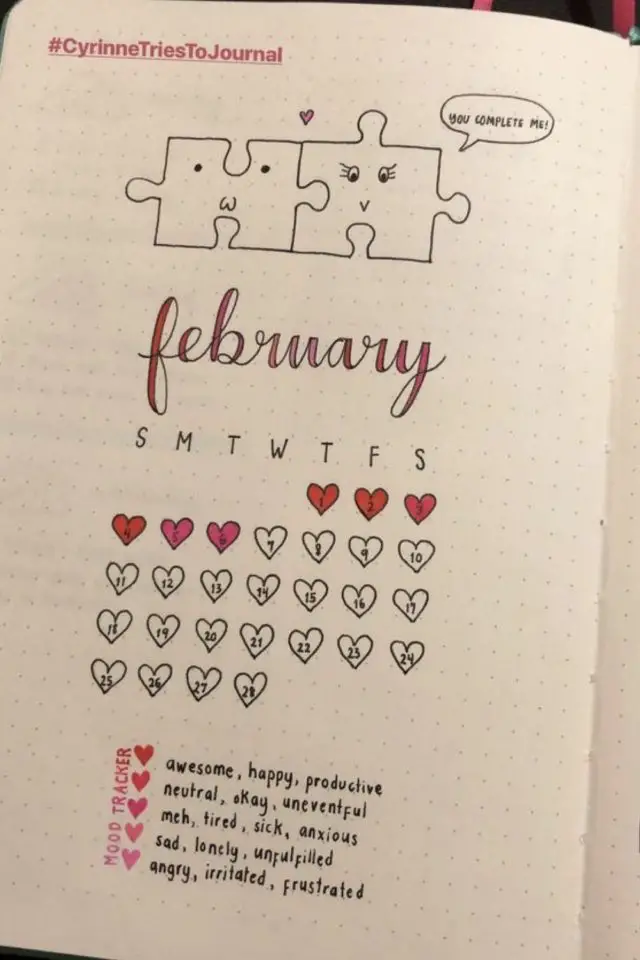 #CyrinneTriesToJournal
YOU COMPLETE ME!
february
S M T W T F S
1 2 3
4 5 6 7 8 9 10
11 12 13 14 15 16 17
18 19 20 21 22 23 24
25 26 27 28
MOOD TRACKER
awesome, happy, productive
neutral, okay, uneventful
meh, tired, sick, anxious
sad, lonely, unfulfilled
angry, irritated, frustrated